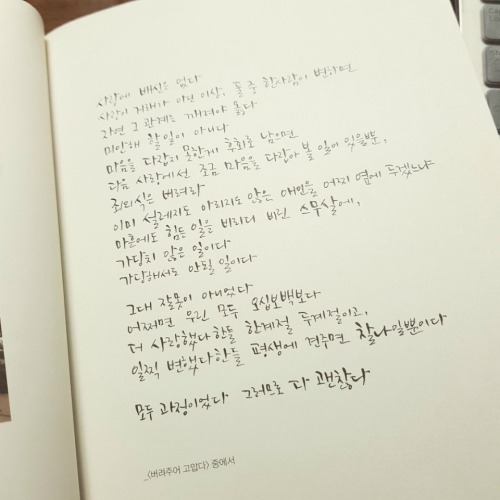 사랑에 배신은 없다
사랑이 거래가 아닌 이상, 둘 중 한사람이 변하면
자연 그 관계는 깨져야 옳다
미안해 할 일이 아니다
마음을 다잡지 못한게 후회로 남으면
다음 사랑에선 조금 마음을 다잡아 볼 일이 있을뿐,
죄의식은 버려라
이미 설레지도 아리지도 않은 애인을 어찌 옆에 두겠느냐
마흔에도 힘든 일을 비리디 비린 스무살에,
가당치 않은 일이다
가당해서도 안될 일이다
그대 잘못이 아니었다
어쩌면 우린 모두 오십보백보다
더 사랑했다 한들 한계절 두계절이고,
일찍 변했다 한들 평생에 견주면 찰나일뿐이다
모두 과정이었다 그러므로 다 괜찮다
_<버려주어 고맙다> 중에서